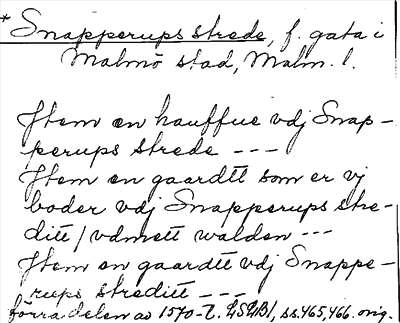 * Snapperups strede, f. gata i
Malmö stad, Malm. l.
Jtem en hauffue vdj Snap-
perups strede ---
Jtem en gaardtt som er vj
boder vdj Snapperups stre-
ditt / vdmett walden ---
Jtem en gaardtt vdj Snappe-
rups streditt ---
förra delen av 1570-t. LSÆB1, ss. 465, 466. orig.